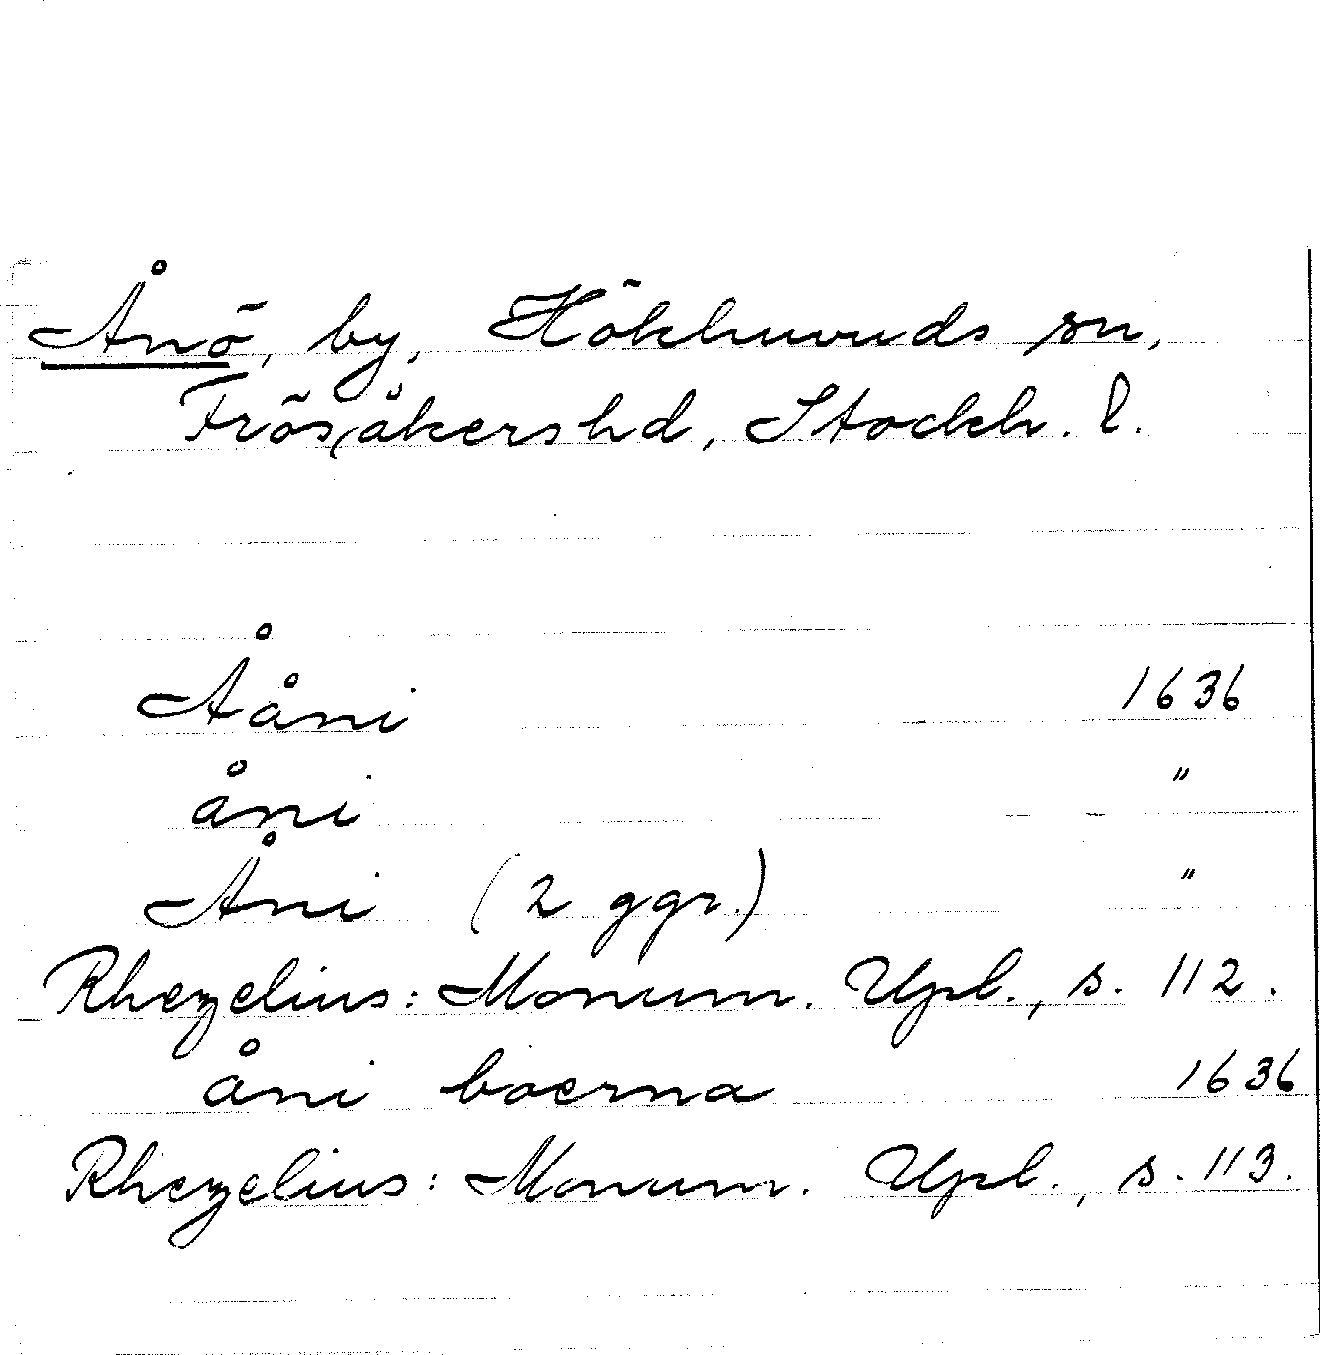 Ånö, by, Hökhuvuds sn,
Frösåkershd, Stockh. l.
Ååni 1636
åni "
Åni (2 ggr.) "
Rhezelius: Monum. Upl., s. 112.
åni boerna 1636
Rhezelius: Monum. Upl., s. 113.